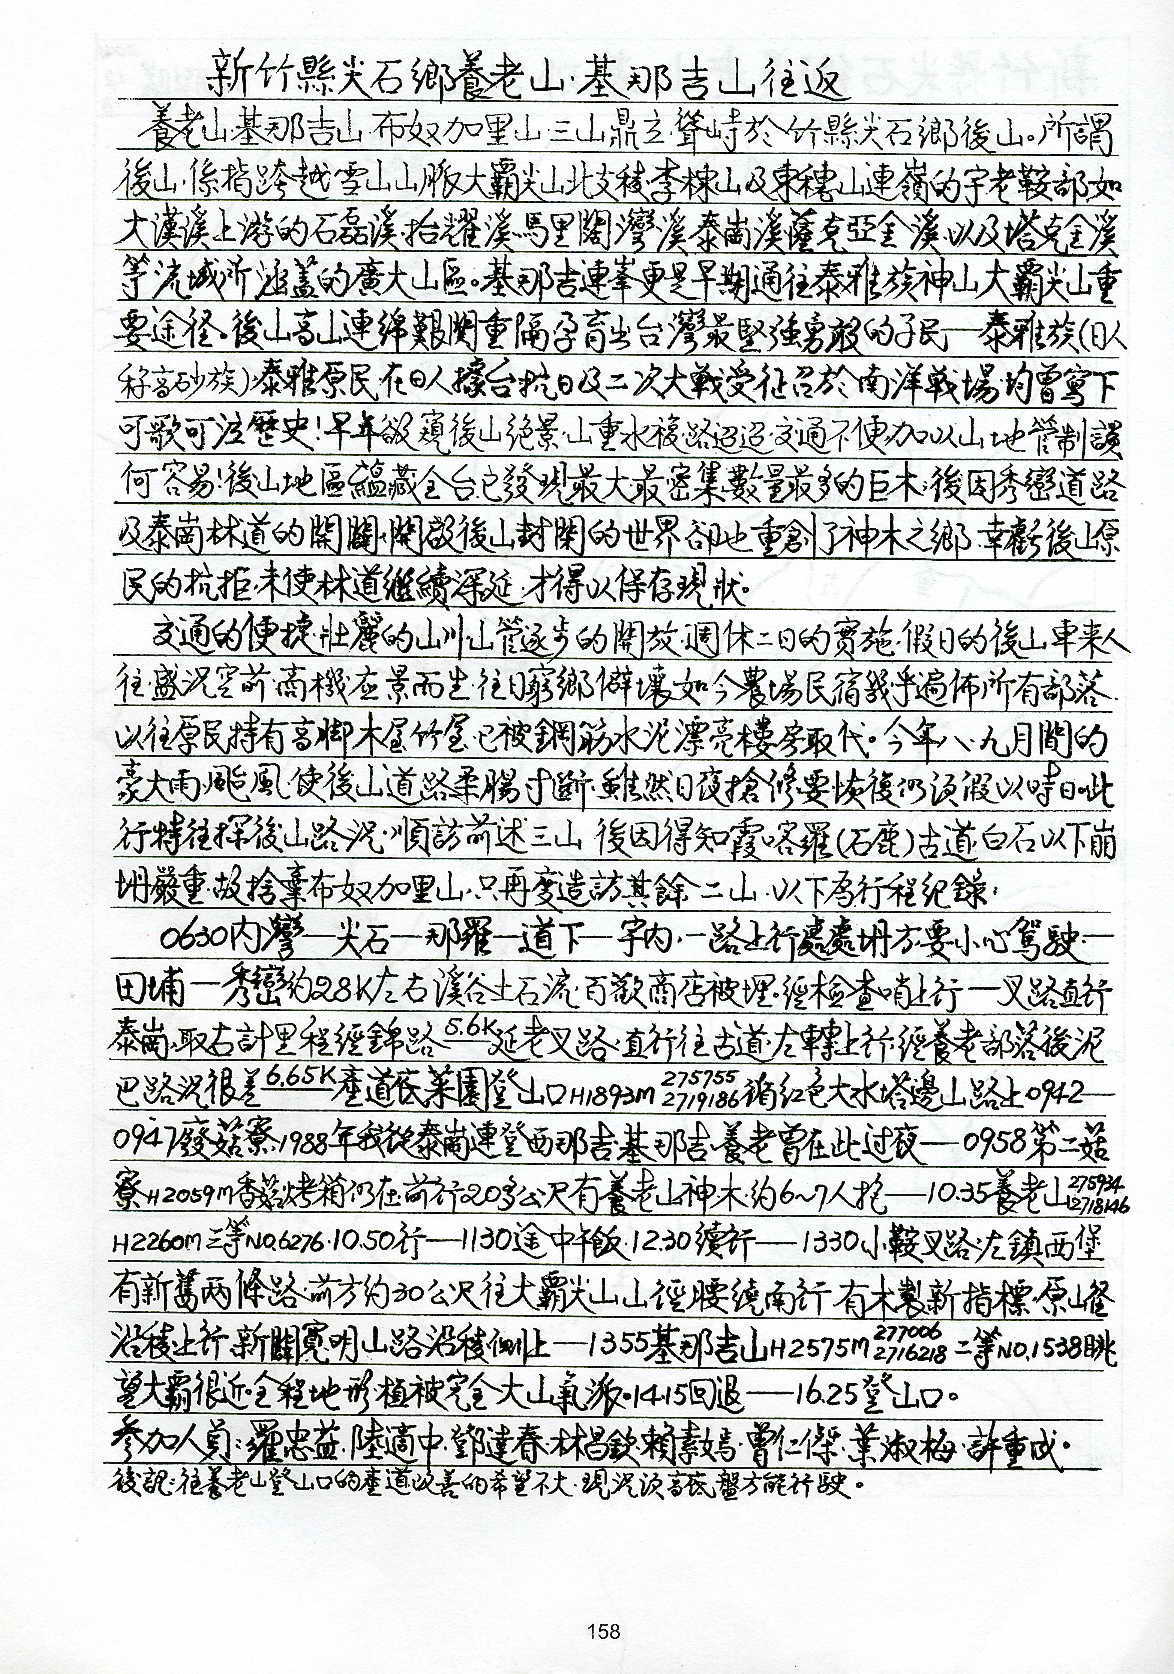 新竹縣尖石鄉養老山．基那吉山往返
養老山．基那吉山 布奴加里山．三山鼎立．聳峙於竹縣尖石鄉後山。所謂
後山．係指跨越雪山山脈大霸尖山北支稜．李棟山及東穗山連嶺的宇老鞍部．如
大漢溪上游的石磊溪．抬耀溪．馬里闊灣溪．泰崗溪．薩克亞金溪．以及塔克金溪
等流域所涵蓋的廣大山區。基那吉連峯更是早期通往泰雅族神山大霸尖山重
要途徑。後山高山連綿艱關重隔．孕育出台灣最堅強勇敢的子民—泰雅族(日人
稱高砂族)．泰雅原民．在日人據台抗日及二次大戰受征召於南洋戰場．均曾寫下
可歌可泣歷史！早年欲窺後山絕景．山重水複．路迢迢．交通不便．加以山地管制．談
何容易！後山地區蘊藏全台已發現最大最密集．數量最多的巨木．後因秀巒道路
及泰崗林道的開闢．開啟後山封閉的世界．卻也重創了神木之鄉．幸虧後山原
民的抗拒．未使林道繼續深延．才得以保存現狀。
交通的便捷．壯麗的山川．山管逐步的開放．週休二日的實施．假日的後山車來人
往．盛況空前．商機在景而生．往日窮鄉僻壤．如今農場民宿幾乎遍佈所有部落．
以往原民持有高脚木屋竹屋．已被鋼筋水泥漂亮樓房取代。今年八．九月間的
豪大雨．颱風．使後山道路柔腸寸斷．雖然日夜搶修．要恢復仍須假以時日．此
行特往探後山路況．順訪前述三山 後因得知霞喀羅(石鹿)古道．白石以下崩
坍嚴重．故捨棄布奴加里山．只再度造訪其餘二山．以下為行程紀錄：
0630內灣—尖石—那羅—道下—宇內．一路上行處處坍方．要小心駕駛．—
田埔—秀巒約2.8K左右溪谷土石流．百歡商店被埋．經檢查哨上行—叉路直行
泰崗．取右計里程經錦路5.6K延老叉路．直行往古道．左轉上行．經養老部落後泥
巴路況很差6.65K產道底菜園登山口H1893M 275755 2719186循紅色大水塔邊山路上0942—
0947廢菇寮．1988年我從泰崗連登西那吉．基那吉．養老曾在此過夜—0958第二菇
寮H2059M香菇烤箱仍在．前行20多公尺有養老山神木．約6~7人抱—10.35養老山275934 2718146
H2260M三等NO.6276．10.50行—1130途中午飯．12.30續行—1330小鞍叉路．左鎮西堡
有新舊兩條路．前方約30公尺往大霸尖山山徑腰繞南行 有木製新指標．原山徑
沿稜上行．新闢寬明山路沿稜側上—1355基那吉山H2575M 277006 2716218 二等NO.1538眺
望大霸很近．全程地形．植被完全大山氣派。1415回退—16.25登山口。
參加人員：羅忠益．陸適中．鄧建春．林昌欽．賴素嫣．曾仁傑．葉淑梅．許重成。
後記：往養老山登山口的產道改善的希望不大．現況須高底盤方能行駛。
158